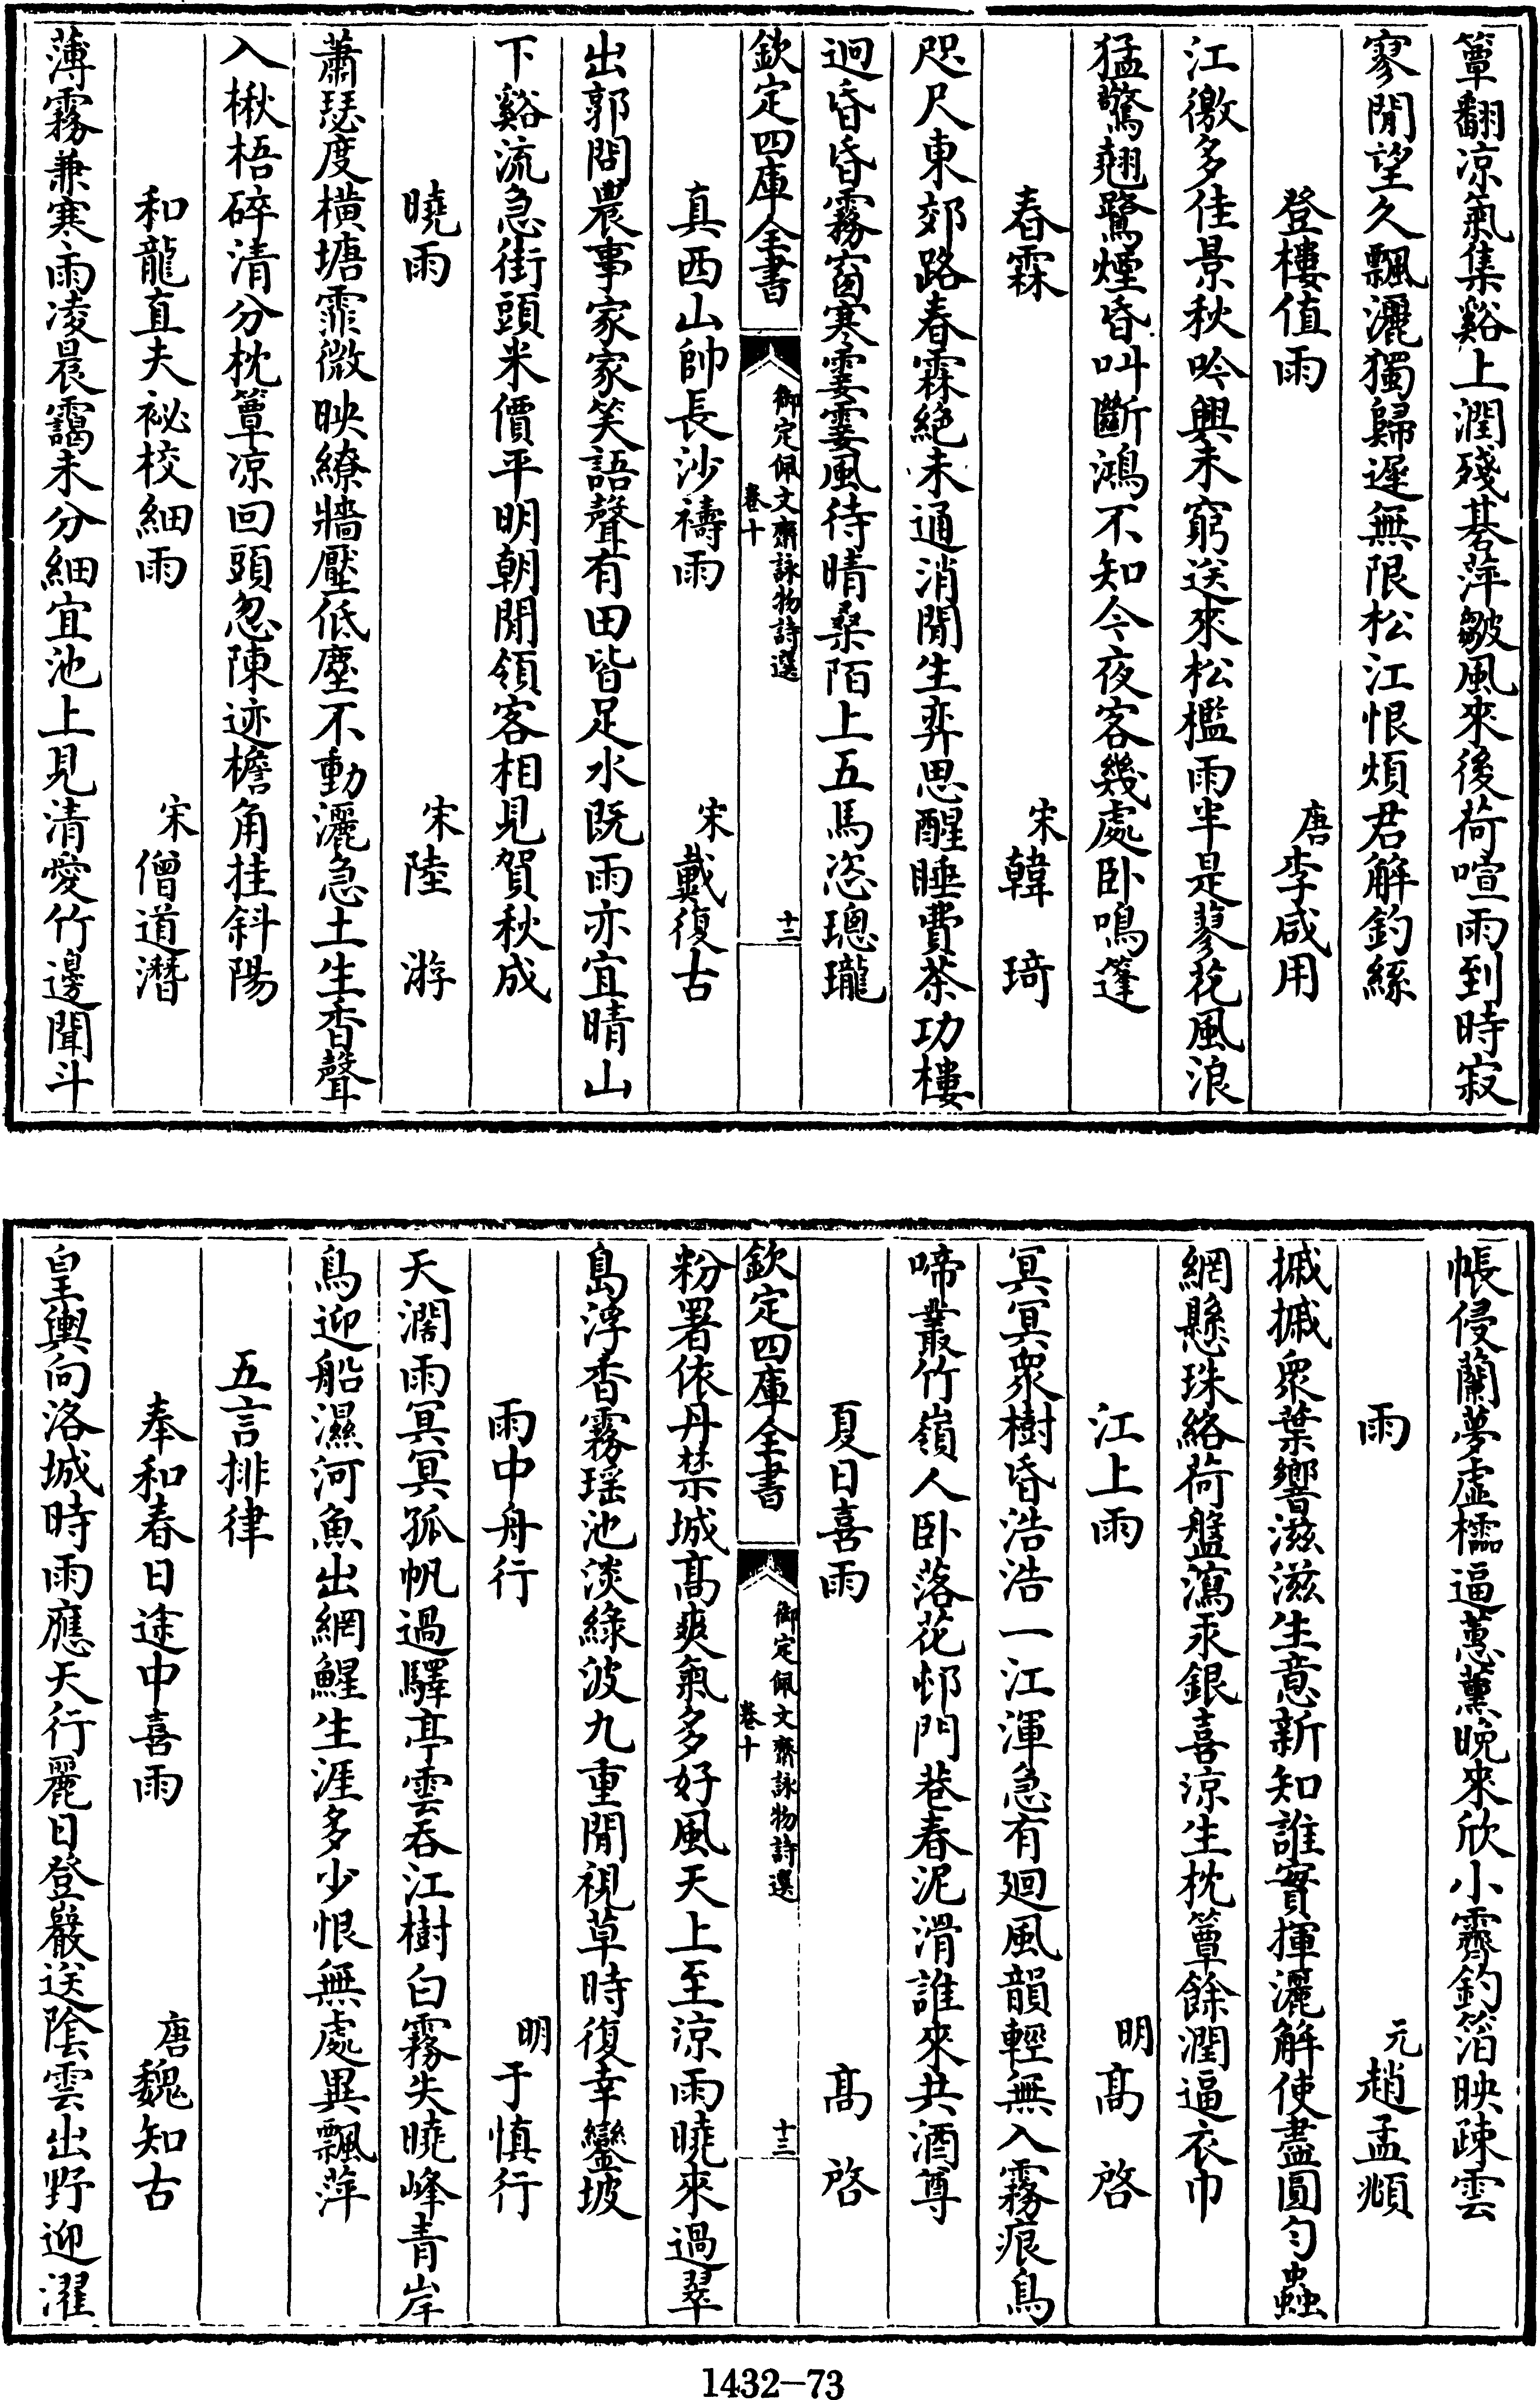 簟翻凉氣集谿上潤殘棊萍皺風來後荷喧雨到時寂
寥閒望久飄灑獨歸遲無限松江恨煩君解釣絲
登樓值雨 唐李咸用
江徼多佳景秋吟興未窮送來松檻雨半是蓼花風浪
猛驚翹鷺煙昏叫斷鴻不知今夜客幾處卧鳴篷
春霖 宋韓琦
咫尺東郊路春霖絶未通消閒生弈思醒睡費茶功樓
迥昏昏霧窗寒霎霎風待晴桑陌上五馬恣璁瓏
欽定四庫全書 御定佩文齋詠物詩選 卷十 十二
真西山帥長沙禱雨 宋戴復古
出郭問農事家家笑語聲有田皆足水既雨亦宜晴山
下谿流急街頭米價平明朝閒領客相見賀秋成
曉雨 宋陸游
蕭瑟度橫塘霏微映繚牆壓低塵不動灑急土生香聲
入楸梧碎清分枕簟凉回頭忽陳迹檐角挂斜陽
和龍直夫袐校細雨 宋僧道潛
薄霧兼寒雨凌晨靄未分細宜池上見清愛竹邊聞斗
帳侵蘭夢虚櫺逼蕙薰晚來欣小霽釣箔映疎雲
雨 元趙孟頫
摵摵衆葉響滋滋生意新知誰實揮灑解使盡圓勻蟲
網懸珠絡荷盤瀉汞銀喜凉生枕簟餘潤逼衣巾
江上雨 明高啓
冥冥衆樹昏浩浩一江渾急有廻風韻輕無入霧痕鳥
啼叢竹嶺人卧落花邨門巷春泥滑誰來共酒尊
夏日喜雨 高啓
欽定四庫全書 御定佩文齋詠物詩選 卷十 十三
粉署依丹禁城高爽氣多好風天上至凉雨曉來過翠
島浮香霧瑶池淡綠波九重閒視草時復幸鑾坡
雨中舟行 明于慎行
天濶雨冥冥孤帆過驛亭雲吞江樹白霧失曉峰青岸
鳥迎船濕河魚出網鯹生涯多少恨無處異飄萍
五言排律
奉和春日途中喜雨 唐魏知古
皇輿向洛城時雨應天行麗日登巖送陰雲出野迎濯
1432—73